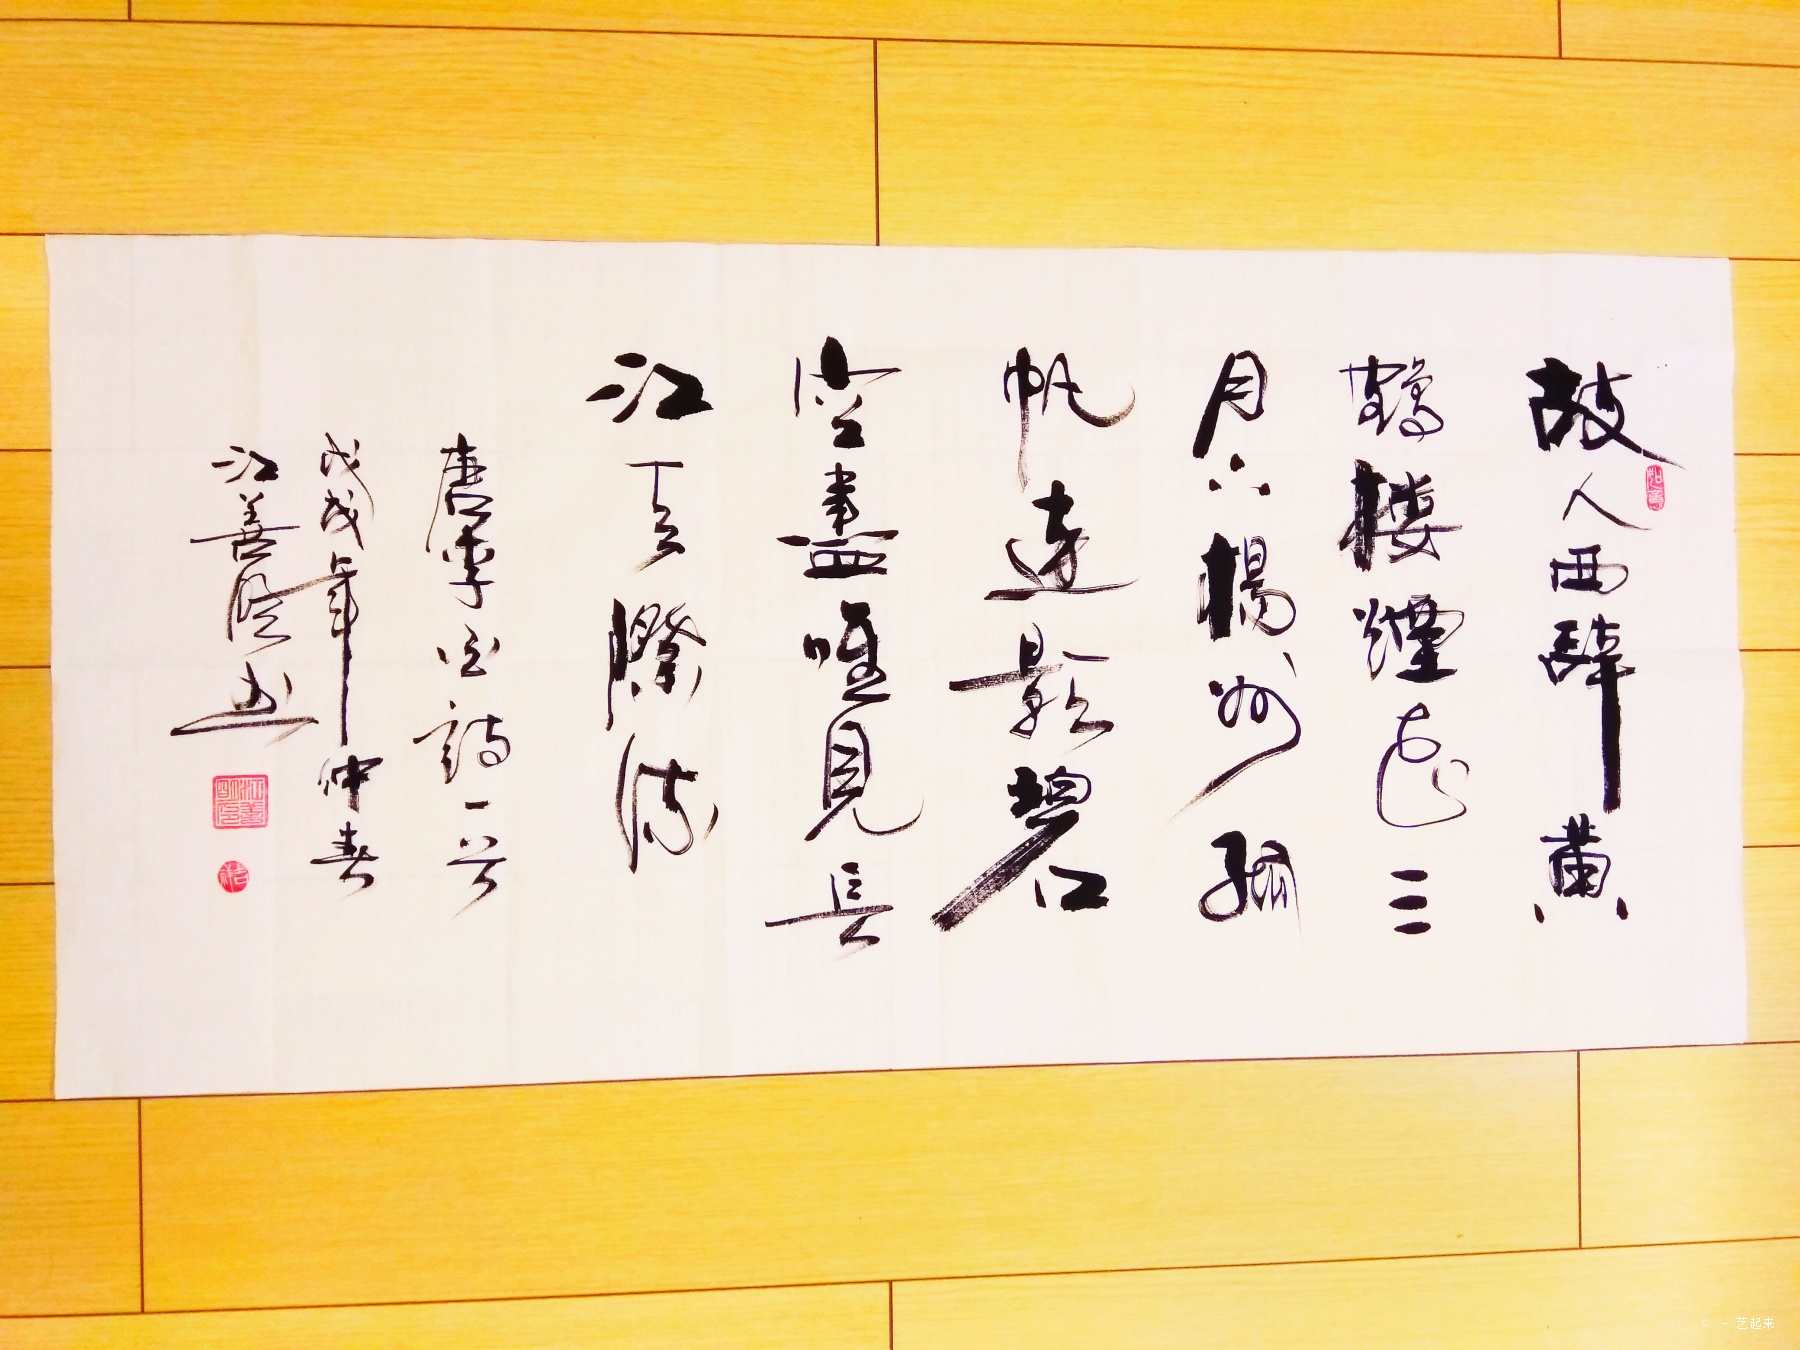 故人西辭黃
鶴樓煙花三
月下揚州孤
帆遠影碧
空盡唯見長
江天際流
唐李白詩一首
戊戌年仲春
江善书
艺起来